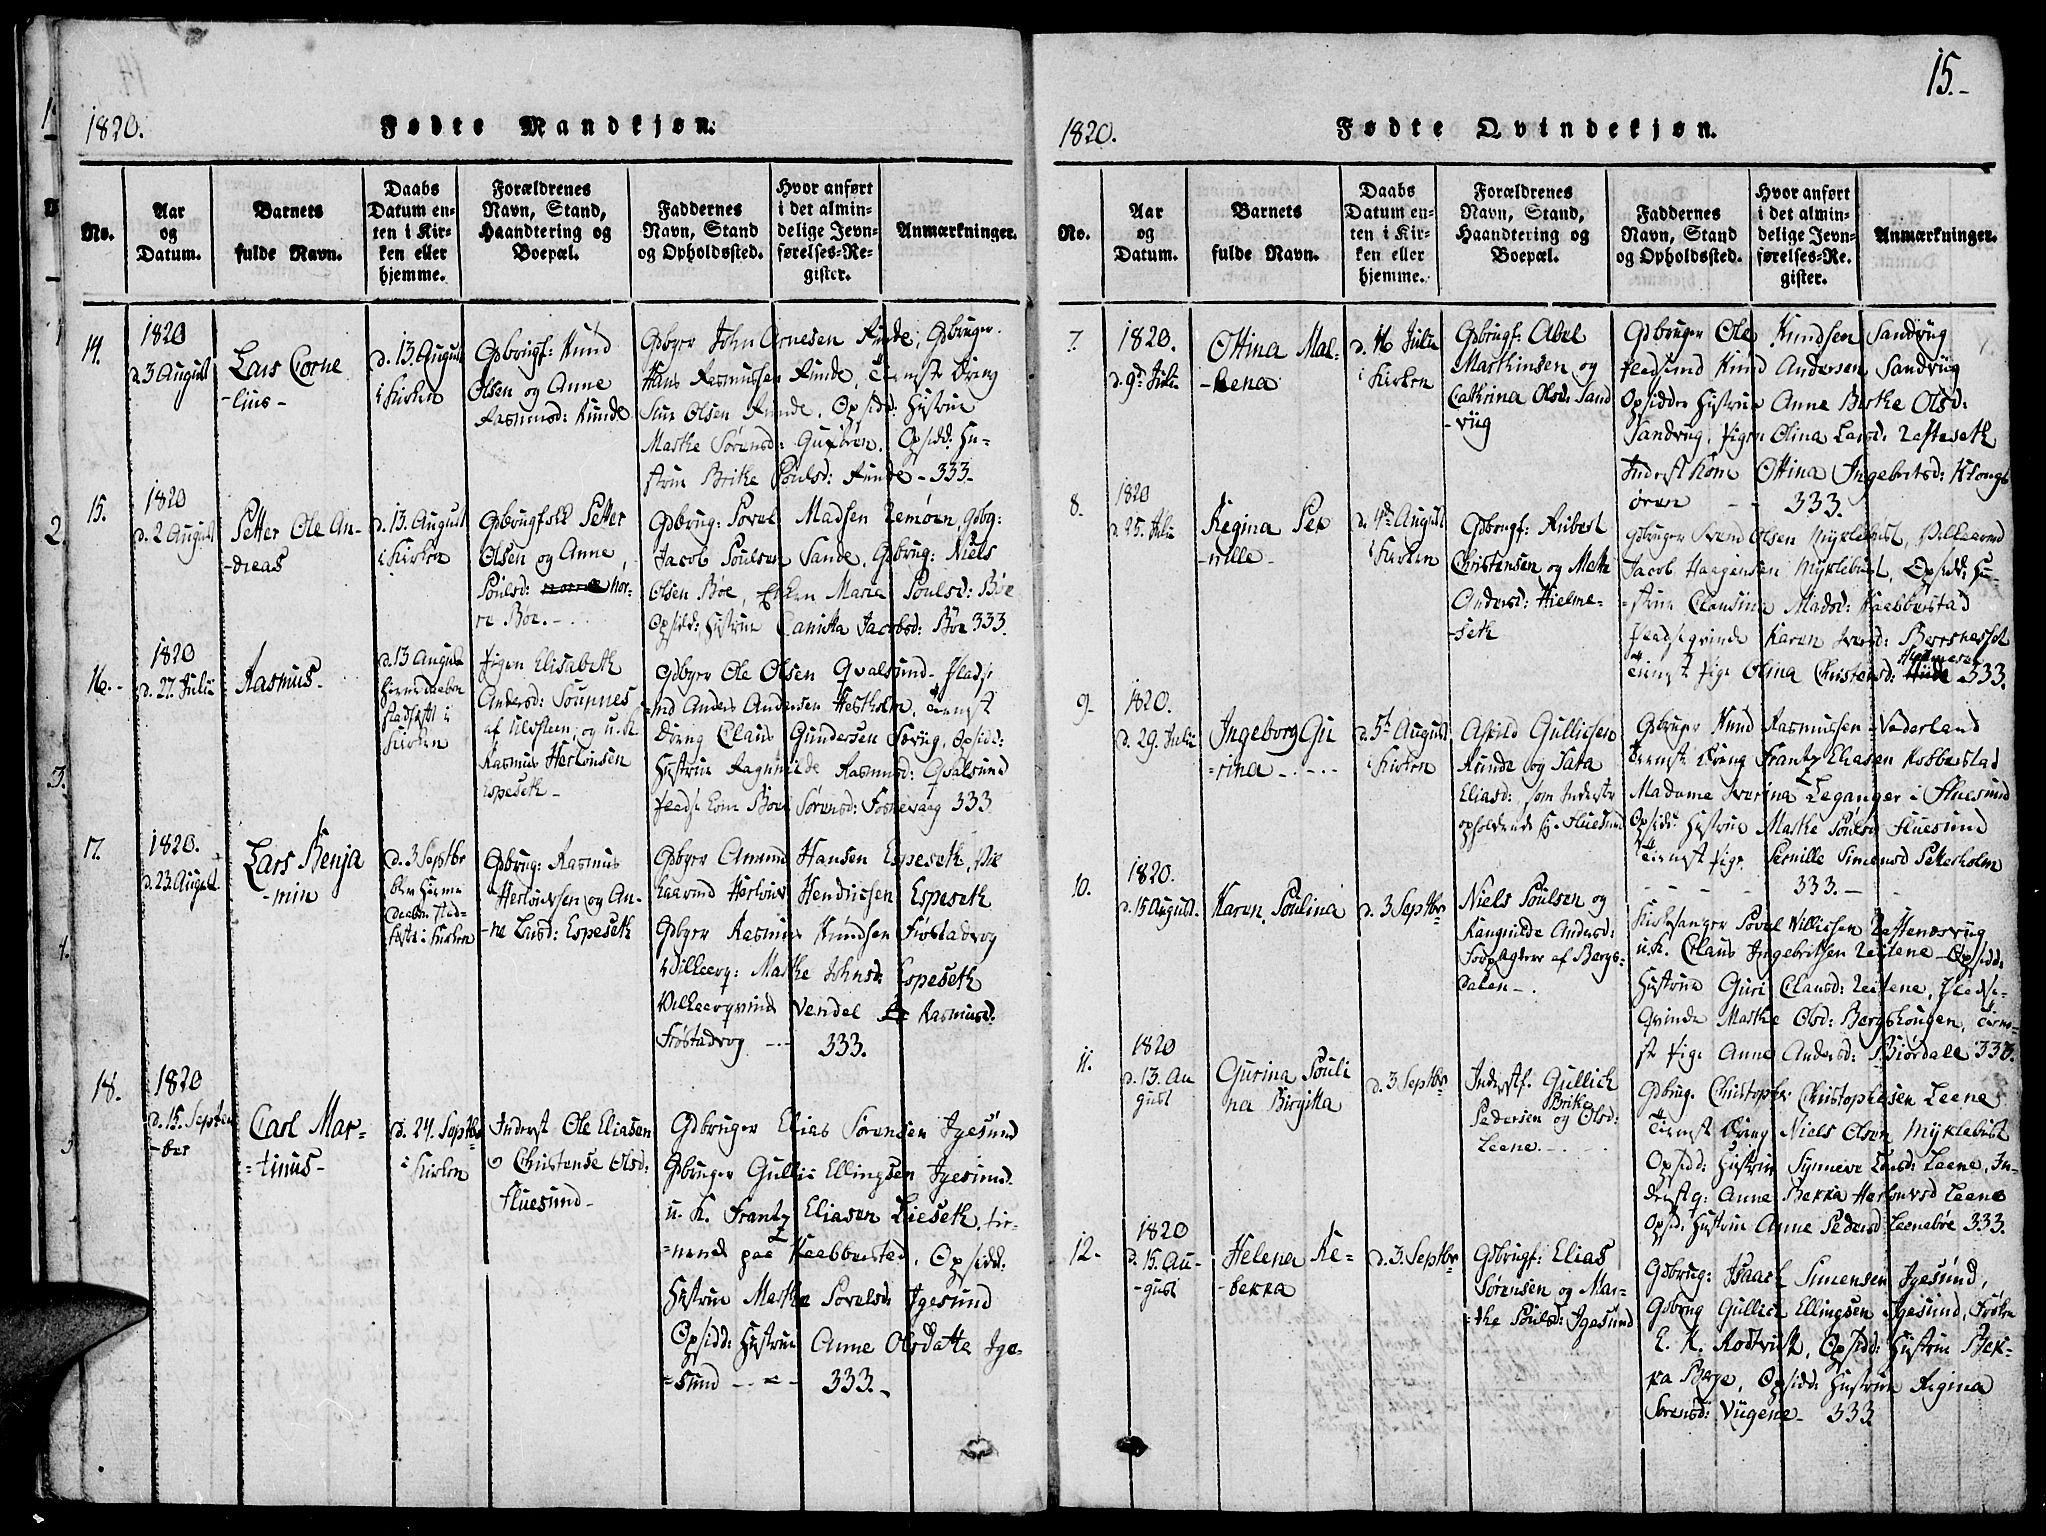 15.-
1820.
Fødte Mandkjøn.
No.
Aar
og
Datum.
Barnets
fulde Navn.
Daabs
Datum en-
ten i Kir-
ken eller
hjemme.
Forældrenes
Navn, Stand,
Haandtering og
Boepæl.
Faddernes
Navn, Stand
og Opholdssted.
Hvor anført
i det almin-
delige Jevn-
førelses-Re-
gister.
Anmærkninger.
14.
1820
d. 3 August
Lars Corne
-lius-
d. 13. August
i Kirken
Gdbrugf: Knud
Olsen og Anne
Rasmusd: Runde
Gdbger John Arnesen Runde, Gdbruger
Hans Rasmussen Runde, Tienste Dreng
Siur Olsen Runde. Opsidd: Hustrue
Marthe Sørensd: Opsidd: Hu-
strue Brithe Poulsd: Runde - 333-
15.
1820
d. 2 August
Petter Ole An-
-dreas
d. 13. August
i Kirken
Gdbrugfolk Petter
Olsen og Anne
Poulsd: nor-
re Bøe.-
Gdbrug: Povel Madsen Remøen, Gdbg:
Jacob Poulsen Sande, Gdbrug: Niels
Olsen Bøe, Enken Maria Poulsd: Bøe
Opsidd: Hustrue Jacobsd: Bøe 333.
16.-
1820
d. 27. Julii
Rasmus-
d. 13 August
hiemedøbt
stadfæst i
Kirken
Pigen Elisabeth
Andersd:
af Ulvsteen, og u.k.
Rasmus Herlovsen
Espeseth-
Gdbger Ole Olsen Qvalsund- Plads
md Anders Andersen Hestholm, Tienst
Dreng Claus Gundersen Sævug, Opsidd:
Hustrue Ragnhilde Rasmusd: Qvalsund
Pladse Kone Sørensd: Fosnevaag 333
17.
1820.
d. 23. August
Lars Benja
min
d. 3 Septbr
blev hieme
døbt stad-
fæstet i Kirken
Gdbrug: Rasmus
Herlovsen og An-
-ne Larsd: Espeseth
Gdbger Amund Hansen Espeseth, Vil
kaarmd Herlovs Hendricsen Espeseth
Gdbger Rasmus Knudsen Frøstadvog
Vilkaarq: Marthe Johnsd: Espeseth
Vilkaarqvind Vendel Rasmusd:
Frøstadvog -.- 333.
18.
1820
d. 15. Septem
-ber
Carl Mar-
-tinus-
d. 24. Septbr
i Kirken
Inderst Ole Eliasen
o Christense Olsd:
Fluesund-
Gdbruger Elias Sørensen Igesund
Gdbruger Gullic Ellingsen Igesund.
u. K. Frantz Eliasen Lieseth, tie-
-nende paa Kaabberstad, Opsidd:
Hustrue Marthe Povelsd: Igesund
Opsidd: Hustrue Anne Olsdatte Ige-
-sund - - - 333.-
1820.
Fødte Qvindekjøn.
No.
Aar
og
Datum.
Barnets
fulde Navn.
Daabs
Datum en-
ten i Kir-
ken eller
hjemme.
Forældrenes
Navn, Stand,
Haandtering og
Boepæl.
Faddernes
Navn, Stand
og Opholdssted.
Hvor anført
i det almin-
delige Jevn-
førelses-Re-
gister.
Anmærkninger.
7.
1820.
d. 9d Julii
Ottina Mal-
-lena
d. 16 Julii
i Kirken
Gdbrugf: Abel
Marthinsen og
Cathrina Olsd: Sand
-vüg
Gdbruger Ole Knudsen Sandvug
Pladsmd Knud Andersen Sandvüg
Opsidder Hustrue Anne Berthe Olsd:
Sandvug, Pigen Olina Larsd: Røfteseth
Inderst Kone Ottina Ingebrtsd: Klongs
øren - - 333.
8.
1820
d. 25. Julii
Regina Per
-nille-
d. 4de August
i Kirken
Gdbrugf: Rubert
Christensen og Mette
Andersd: Hielme-
-seth
Gdbruger Svend Olsen Myklebust, Vilkaarmd
Jacob Haagensen Myklebust, Opsidd: Hu-
-strue Clausina Madsd: Kaabberstad
Pladseqvinde Karen Iversd:
Tienst Pige Olina Christensd: Hielmeset 333.
9-
1820.
d. 29. Julii
Ingeborg Gu
-rina -.-.-
d. 5te August
i Kirken
Gullicsen
Runde og
Eliasd: som Inderste
opholdende sg. Fluesund
Gdbruger Knud Rasmussen Vaderland
Tienst Dreng Frantz Eliasen Kobberstad
Madame Iverina Leganger i Fluesund
Opsidd: Hustrue Marthe Poulsd Fluesund
Tienst Pige Pernille Simensd
- - - - 333. -
10.
1820.
d. 15 August.
Karen Poulina
d. 3 Septbr
Niels Poulsen og
Rangnilde Andersd:
af Bergs-
dalen-.
Kirkesanger Povel Villicsen Røftenæsvug
u.K. Claus Ingebritsen Reitene - Opsidd:
Hustrue Guri Clausd: Reitene, Pladse-
Qvinde Marthe Olsd: Bergshougen, Tiene-
st Pige Anne Andersd: Biørdale 333.
11.
1820
d. 13. Au
gust
Gurina Pouli
na Birgitta
d. 3 Septbr
Inderstf. Gullich
Pedersen og Brithe Olsd:
Leene.-.
Gdbrug. Christopher Christophersen Leene
Tienst Dreng Niels Olsen Myklebust
Opsidd: Hustrue Synneve Larsd: Leene, In-
derstq: Anne Bekka Herlouvsd Leene
Opsid. Hustrue Anne Pedersd Leenebøe 333.
12-
1820
d. 15. Au-
-gust
Helena Re-
-bekka
d. 3 Septbr
Gdbrugf: Elias
Sørensen og Mar-
-the Poulsd: Igesund
Gdbrug: Isaach Simensen Igesund,
Gdbrug Gullich Ellingsen Igesund, Frøken
E. K. Rodtvidt, Opsidd: Hustrue Bek-
ka Berge, Opsidd: Hustrue Regina
Sørensd: Vügene- 333